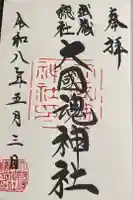 奉拝
武蔵
總社
大國魂神社
令和八年五月三日